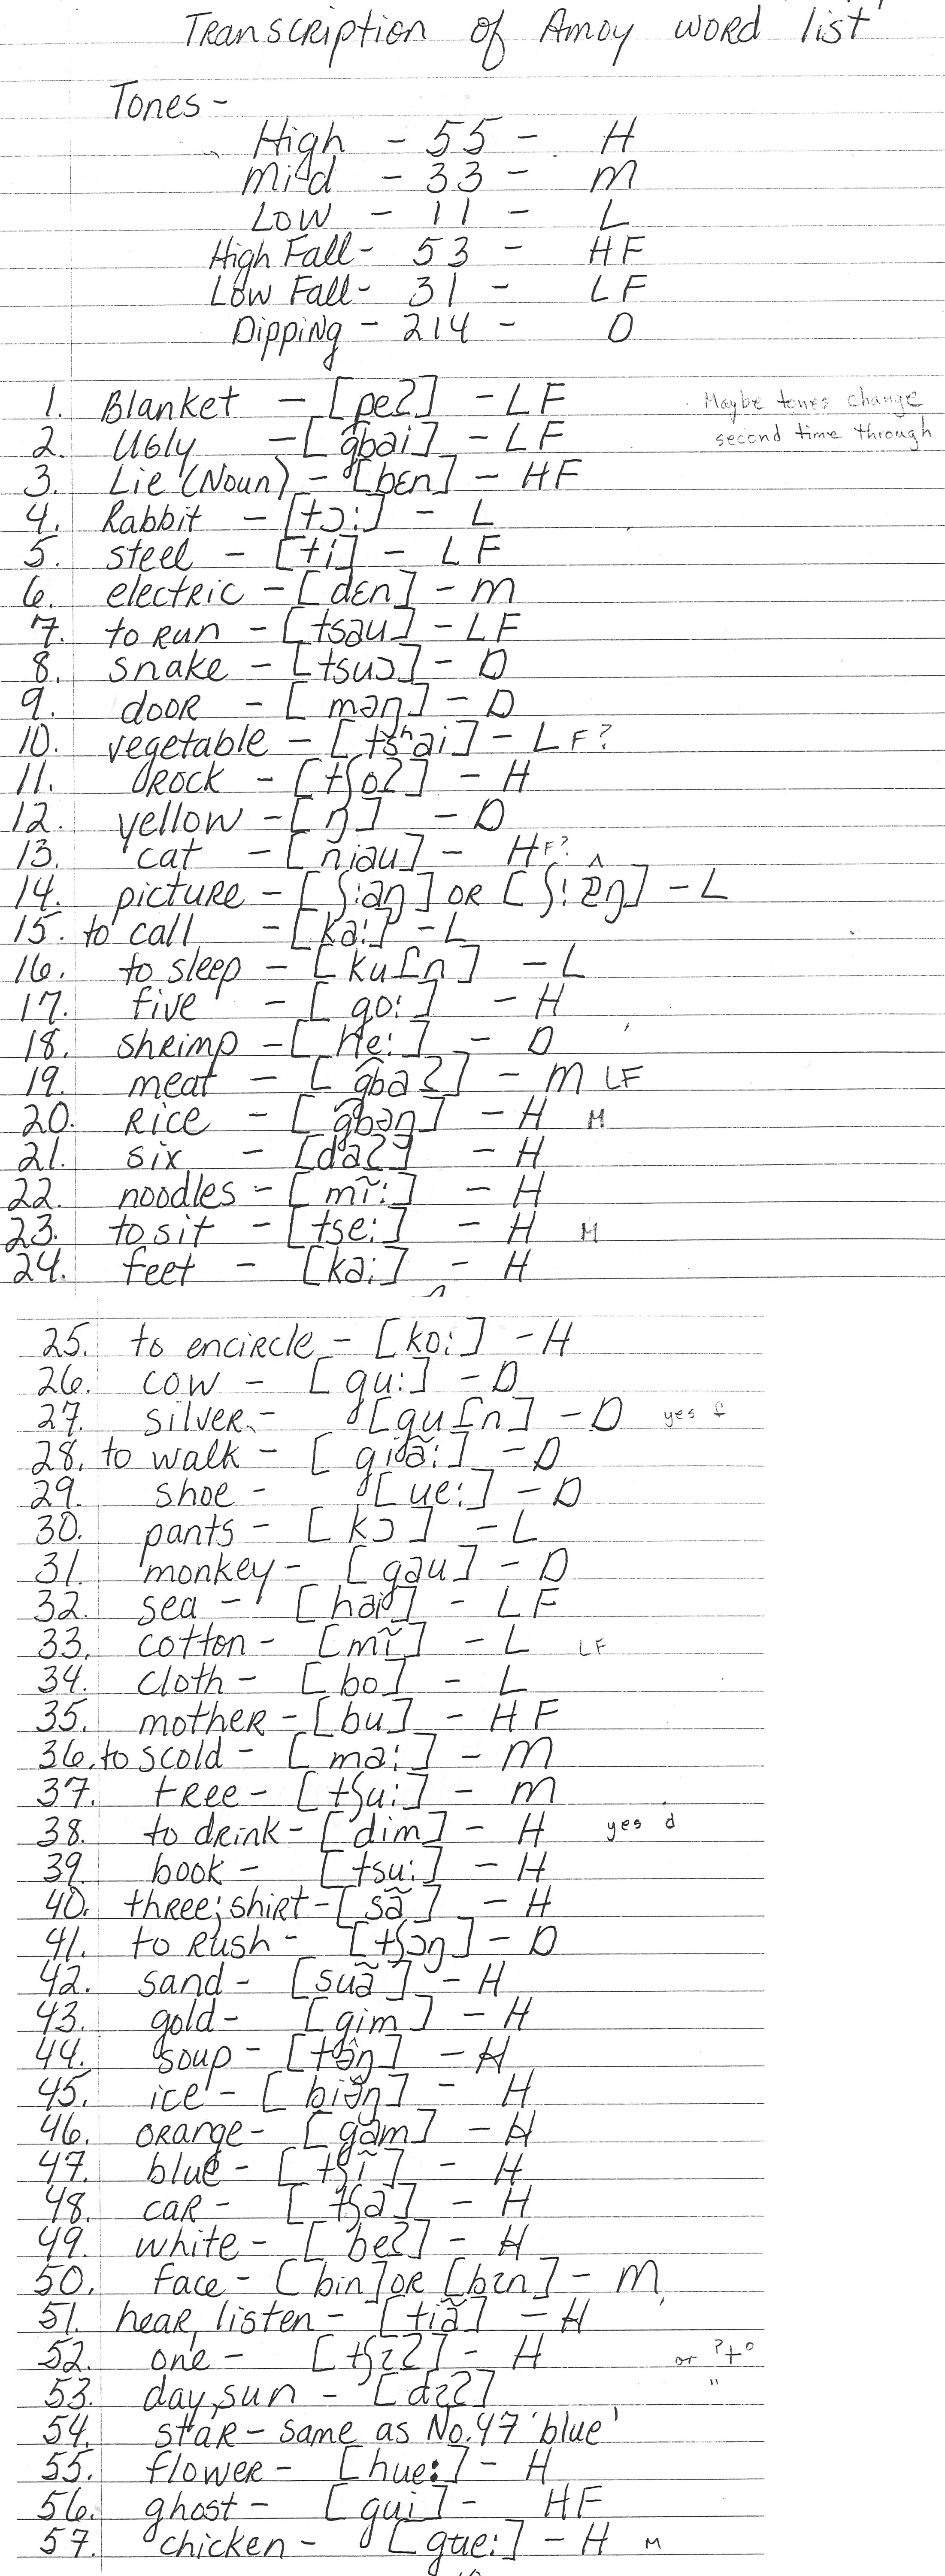 Transcription of Amoy word list
Tones -
High - 55 - H
Mid - 33 - M
Low - 11 - L
High Fall - 53 - HF
Low Fall - 31 - LF
Dipping - 214 - D
1. Blanket - [peʔ] - LF Maybe tones change
2. Ugly - [g͡bai] - LF second time through
3. Lie (Noun) - [bɛn] - HF
4. Rabbit - [tɔː] - L
5. steel - [ti] - LF
6. electric - [dɛn] - M
7. to run - [tsau] - LF
8. snake - [tsuɔ] - D
9. door - [məŋ] - D
10. vegetable - [tsʰai] - LF?
11. rock - [tʃoʔ] - H
12. yellow - [ŋ] - D
13. cat - [niau] - HF?
14. picture - [ʃːəŋ] OR [ʃːɐŋ] - L
15. to call - [kaː] - L
16. to sleep - [kuɪn] - L
17. five - [goː] - H
18. shrimp - [heː] - D
19. meat - [g͡baʔ] - M LF
20. Rice - [g͡bəŋ] - H M
21. six - [daʔ] - H
22. noodles - [mĩː] - H
23. to sit - [tseː] - H M
24. feet - [kaː] - H
25. to encircle - [koː] - H
26. cow - [guː] - D
27. silver - [guɪn] - D yes
28. to walk - [giãː] - D
29. shoe - [ueː] - D
30. pants - [kɔ] - L
31. monkey - [gau] - D
32. sea - [hai] - LF
33. cotton - [mĩ] - L LF
34. cloth - [bo] - L
35. mother - [bu] - HF
36. to scold - [maː] - M
37. tree - [tʃuː] - M
38. to drink - [dim] - H yes d
39. book - [tsuː] - H
40. three; shirt - [sã] - H
41. to rush - [tʃɔŋ] - D
42. sand - [suã] - H
43. gold - [gim] - H
44. soup - [təŋ] - H
45. ice - [biəŋ] - H
46. orange - [gam] - H
47. blue - [tʃĩ] - H
48. car - [tʃa] - H
49. white - [beʔ] - H
50. face - [bin] OR [bɪn] - M
51. hear, listen - [tiã] - H
52. one - [tʃɪʔ] - H or ʔt°
53. day, sun - [dɪʔ] "
54. star - same as No. 47 'blue'
55. flower - [hueː] - H
56. ghost - [gui] - HF
57. chicken - [gueː] - H M